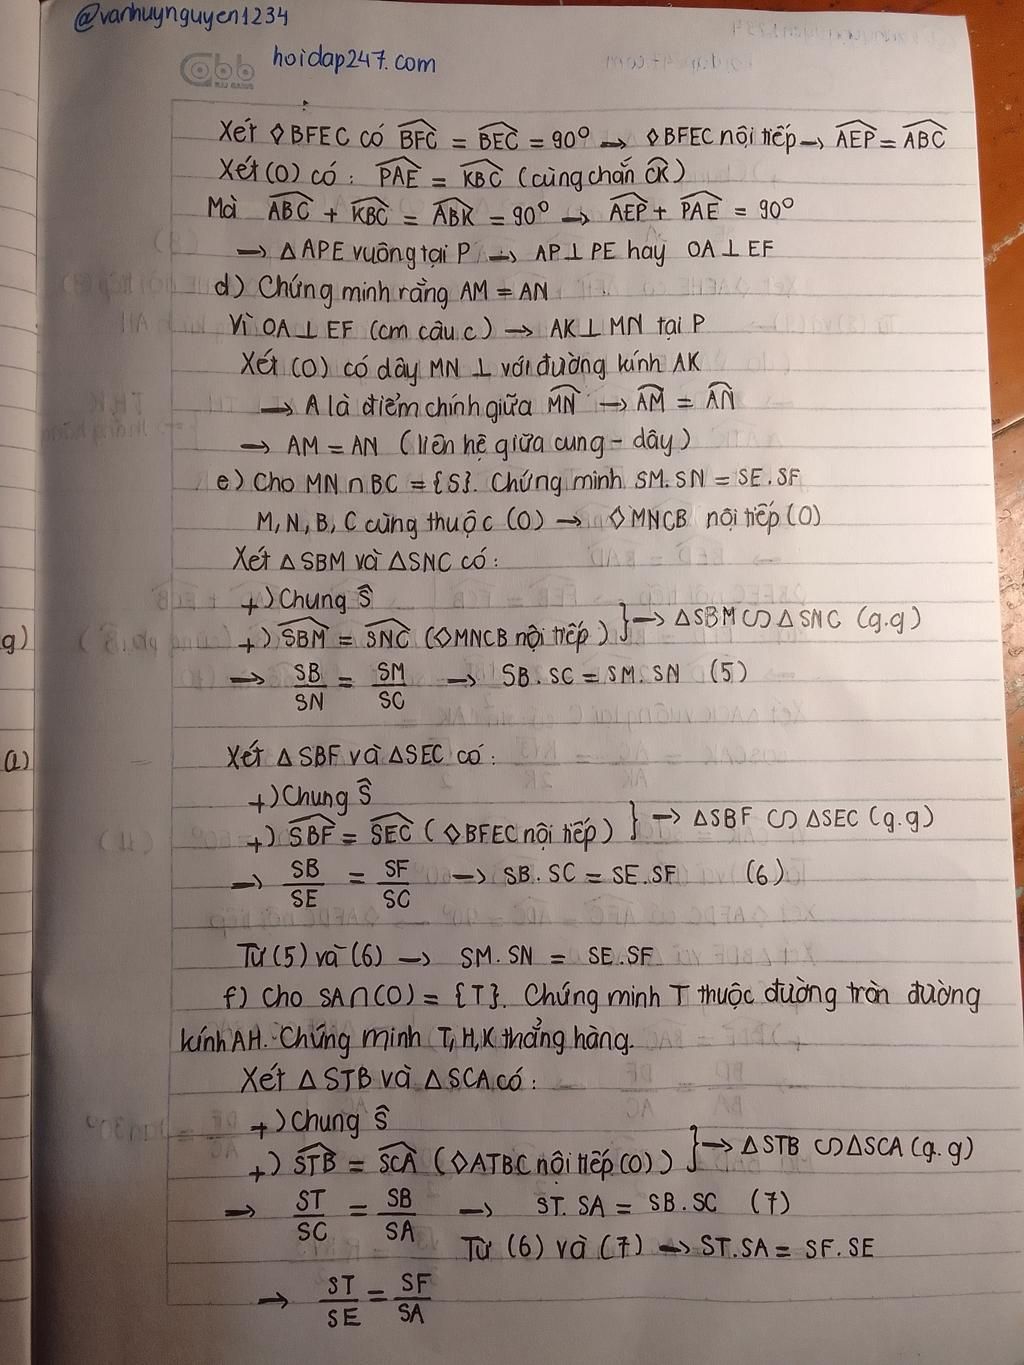 @vanhuynguyen1234
hoidap247.com
Xét ◊BFEC có \widehat{BFC} = \widehat{BEC} = 90° → ◊BFEC nội tiếp → \widehat{AEP} = \widehat{ABC}
Xét (O) có: \widehat{PAE} = \widehat{KBC} (cùng chắn \widehat{CK})
Mà \widehat{ABC} + \widehat{KBC} = \widehat{ABK} = 90° → \widehat{AEP} + \widehat{PAE} = 90°
→ △APE vuông tại P → AP⊥PE hay OA⊥EF
d) Chứng minh rằng AM = AN
Vì OA⊥EF (cm câu c) → AK⊥MN tại P
Xét (O) có dây MN ⊥ với đường kính AK
→ A là điểm chính giữa \widehat{MN} → \widehat{AM} = \widehat{AN}
→ AM = AN (liên hệ giữa cung - dây)
e) Cho MN∩BC = {S}. Chứng minh SM.SN = SE.SF
M, N, B, C cùng thuộc (O) → ◊MNCB nội tiếp (O)
Xét △SBM và △SNC có:
+) Chung \widehat{S}
+) \widehat{SBM} = \widehat{SNC} (◊MNCB nội tiếp) } → △SBM ∽ △SNC (g.g)
→ SB/SN = SM/SC → SB.SC = SM.SN (5)
Xét △SBF và △SEC có:
+) Chung \widehat{S}
+) \widehat{SBF} = \widehat{SEC} (◊BFEC nội tiếp) } → △SBF ∽ △SEC (g.g)
→ SB/SE = SF/SC → SB.SC = SE.SF (6)
Từ (5) và (6) → SM.SN = SE.SF
f) Cho SA∩(O) = {T}. Chứng minh T thuộc đường tròn đường
kính AH. Chứng minh T, H, K thẳng hàng.
Xét △STB và △SCA có:
+) Chung \widehat{S}
+) \widehat{STB} = \widehat{SCA} (◊ATBC nội tiếp (O)) } → △STB ∽ △SCA (g.g)
→ ST/SC = SB/SA → ST.SA = SB.SC (7)
Từ (6) và (7) → ST.SA = SF.SE
→ ST/SE = SF/SA
g)
a)